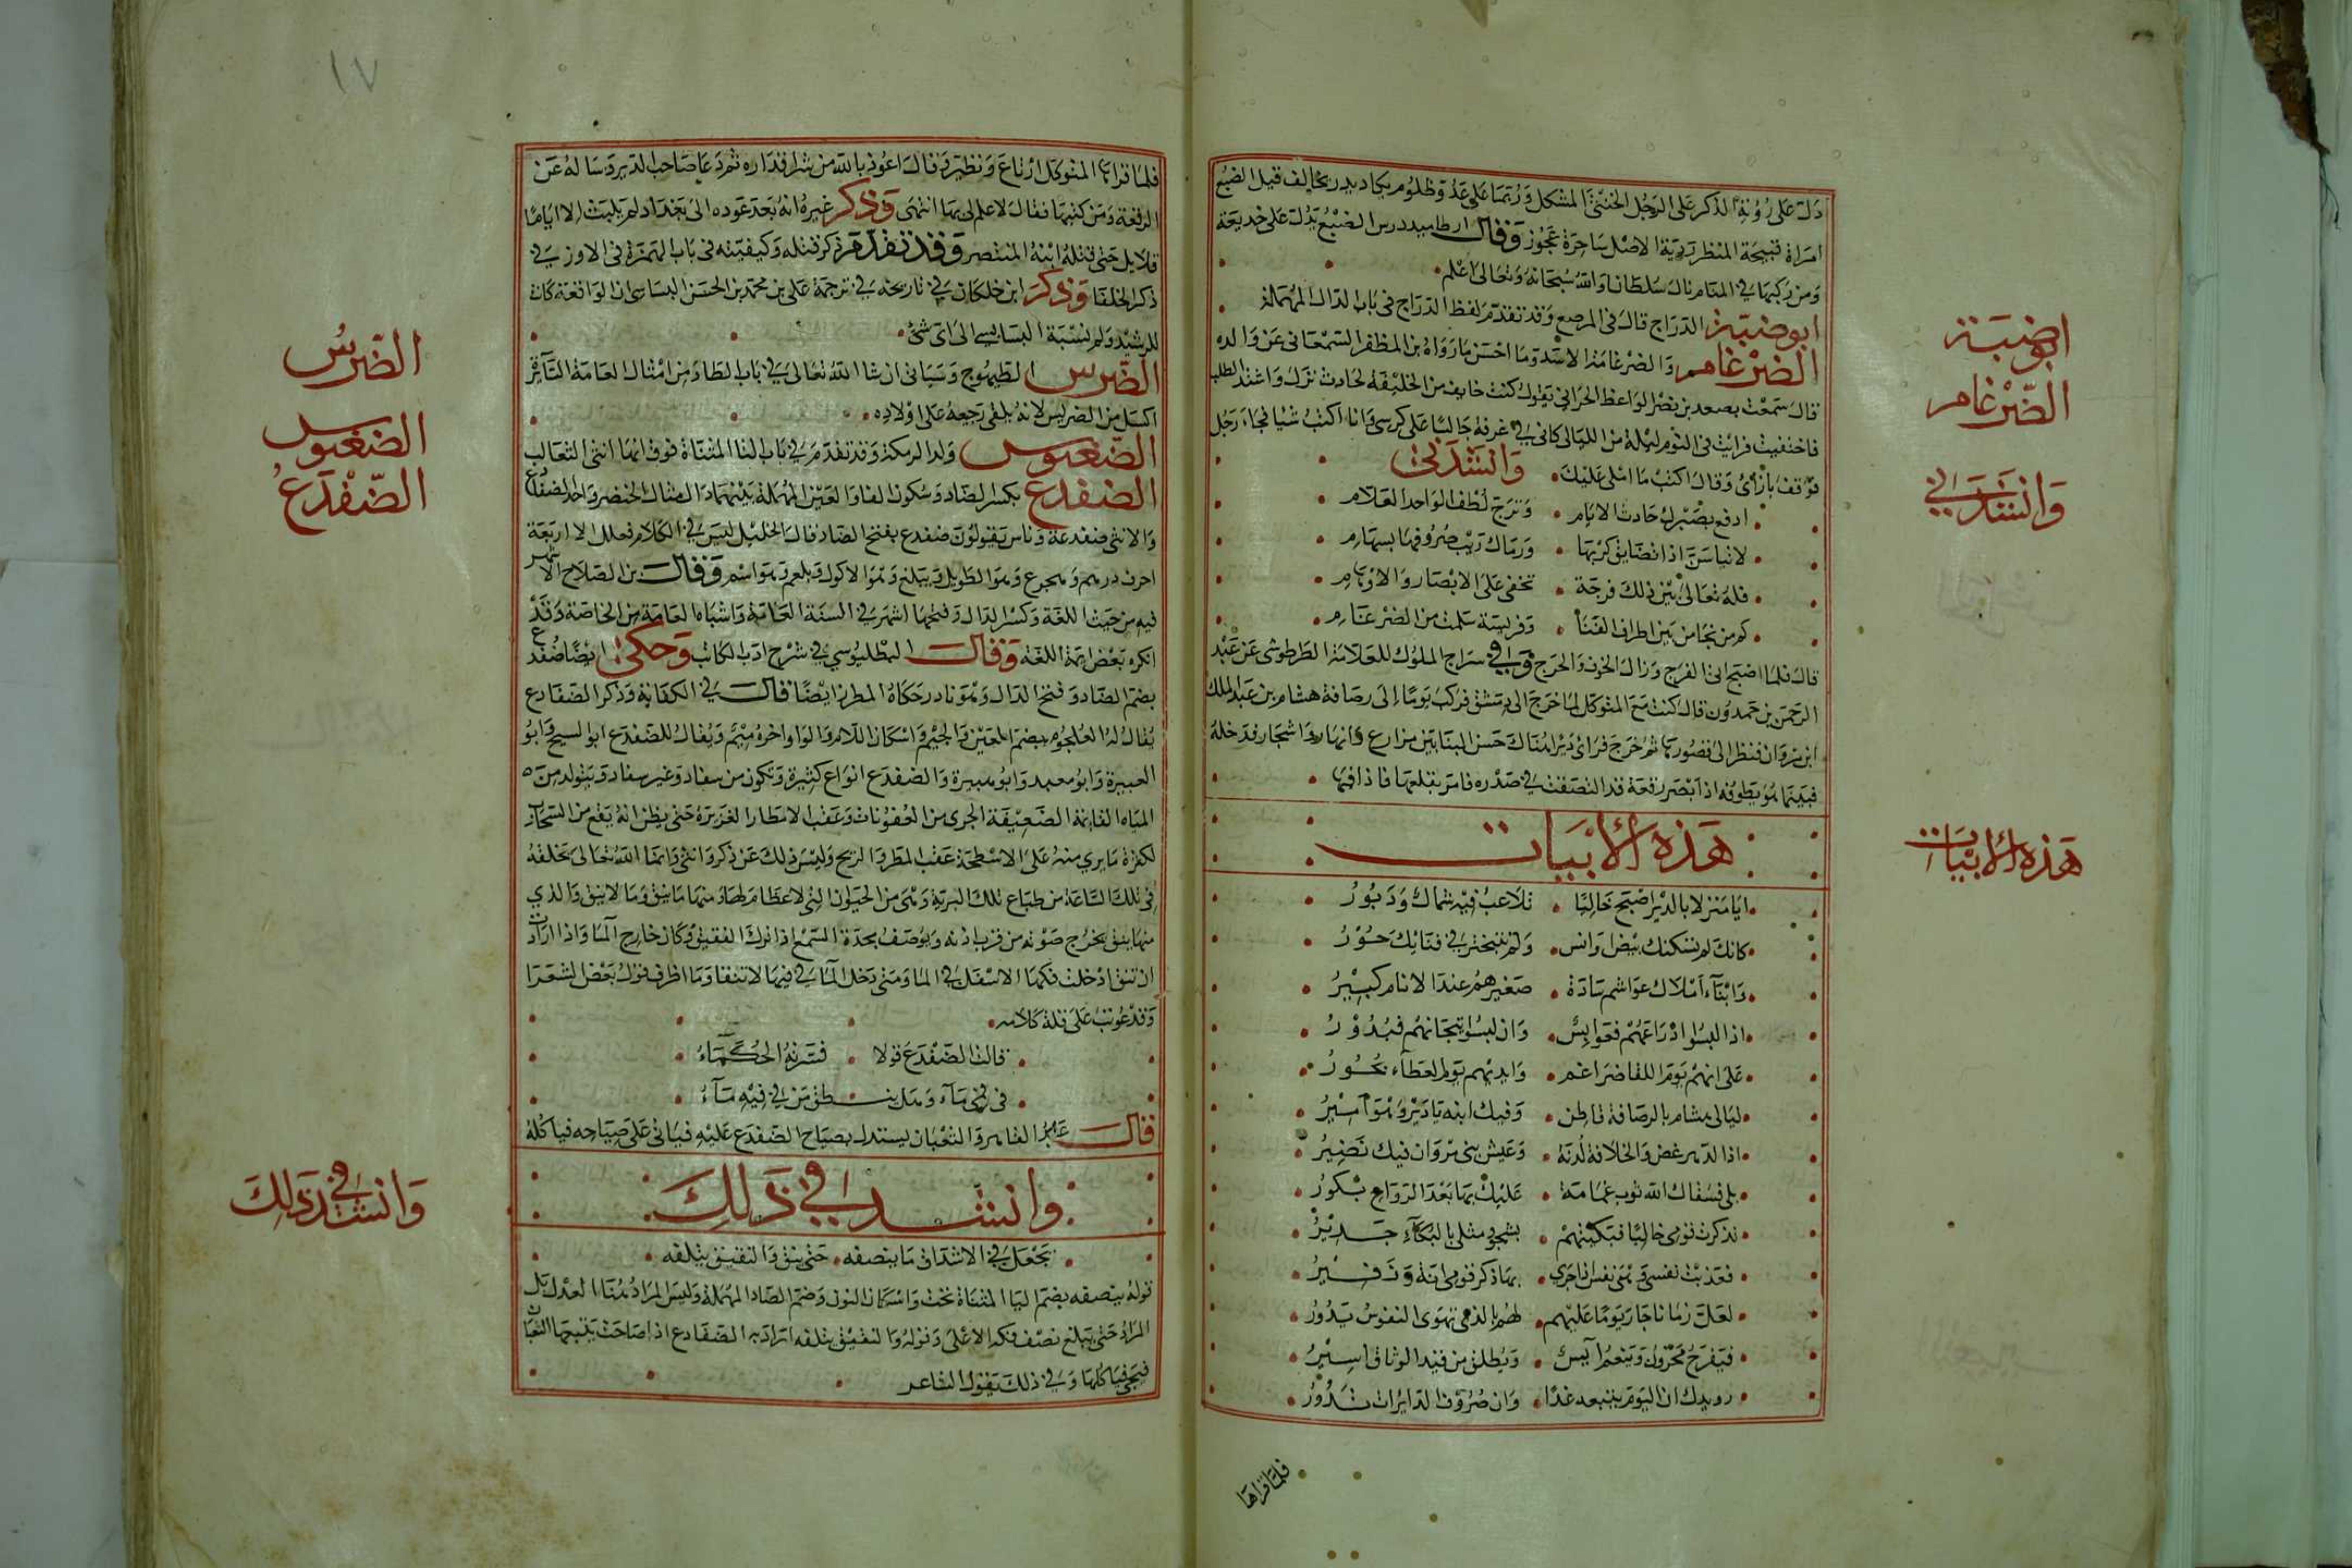 دلت على رؤية الذكر على الرجل الخنثى المشكل وربما على عدو ظلوم مكايد مخالف قيل الضبع
امراة قبيحة المنظر ردية الاصل ساحرة عجوز وقال ارطاميدورس الضبع يدل على خديعة
ومن ركبها في المنام نال سلطانا والله سبحانه وتعالى اعلم
ابوضبة الدراج قال في المرصع وقد تقدم لفظ الدراج في باب الدال المهملة
الضرغام والضرغامة الاسد وما احسن ما رواه بن المظفر السمعاني عن والده
قال سمعت سعد بن نصر الواعظ الحراني يقول كنت خايفا من الخليفة لحادث نزل واشتد الطلب
فاختفيت فرايت في النوم ليلة من الليالي كاني في غرفة جالسا على كرسي وانا اكتب شيا فجاء رجل
فوقف بازائي وقال اكتب ما املي عليك وانشدني
ادفع بصبرك حادث الايام وترج لطف الواحد العلام
لا تياسن اذا تضايق كربها ورماك ريب صروفها بسهام
فله تعالى بين ذلك فرجة تخفى على الابصار والاوهام
كم من نجا من بين اطراف القنا وفريسة سلمت من الضرغام
قال فلما اصبح اتى الفرج وزال الخوف والحرج وفي سراج الملوك للعلامة الطرطوشي عن عبد
الرحمن بن حمدون قال كنت مع المتوكل لما خرج الى دمشق فركب يوما إلى رصافة هشام بن عبد الملك
ابن مروان فنظر الى قصورها ثم خرج فراى ديرا هناك حسن البنا بين مزارع وانهار واشجار فدخله
فبينما هو يطوف اذ ابصر رقعة قد التصقت في صدره فامر بقلعها فاذا فيها
هذه الأبيات
ايا منزلا بالدير اصبح خاليا تلاعب فيه شمال ودبور
كانك لم يسكنك بيض اوانس ولم تتبختر في فنائك حور
وابناء املاك عواشم سادة صغيرهم عند الانام كبير
اذا لبسوا ادراعهم فعوابس وان لبسوا تيجانهم فبدور
على انهم يوم اللقا ضراغم وايديهم يوم العطاء بحور
ليالي هشام بالرصافة قاطن وفيك ابنه يا دير وهو امير
اذ الدهر غض والخلافة لدنة وعيش بني مروان فيك نضير
بلى فسقاك الله ثوب غمامة عليك بها بعد الرواح بكور
تذكرت قومي خاليا فبكيتهم بشجو مثلي بالبكاء جدير
فعذبت نفسي وهي نفس اذا جرى بها ذكر قومي انة وزفير
لعل زمانا جار يوما عليهم لهم بالذي تهوى النفوس يدور
فيفرح محزون وينعم آيس ويطلق من قيد الوثاق اسير
رويدك ان اليوم يتبعه غدا وان صروف الدايرات تدور
فلما قراها
ابوضبة
الضرغام
وانشدني
هذه الأبيات
١٧
فلما قراها المتوكل ارتاع وتطير وقال اعوذ بالله من شر اقداره ثم دعا صاحب الدير وساله عن
الرقعة ومن كتبها فقال لا علم لي بها انتهى وذكر غيره انه بعد عوده الى بغداد لم يلبث الا اياما
قلايل حتى قتله ابنه المنتصر وقد تقدم ذكر قتله وكيفيته في باب الهمزة في الاوز في
ذكر الخلفا وذكر ابن خلكان في تاريخه في ترجمة علي بن محمد بن الحسن البساسي ان الواقعة كانت
للرشيد ولم نسبة البسابسي الى اي شئ
الضرس الطيهوج وسياتي ان شا الله تعالى في باب الطا ومن امثال العامة السائرة
اكسل من الضريس لانه يلقى رجيعه على اولاده
الضغبوس ولد الرمكة وقد تقدم في باب الثا المثناة فوق انها انثى الثعالب
الضفدع بكسر الضاد وسكون الفا والعين المهملة بينهما دال مثال الخنصر واحد الضفادع
والانثى ضفدعة وناس يقولون ضفدع بفتح الضاد قال الخليل ليس في الكلام فعلل الا اربعة
احرف درهم وهجرع وهو الطويل وهبلع وهو الاكول وبلعم وهو اسم وقال بن الصلاح الاشهر
فيه من حيث اللغة وكسر الدال وفتحها اشهر في السنة العامة واشباه العامة من الخاصة وقد
انكره بعض ايمة اللغة وقال البطليوسي في شرح ادب الكاتب وحكى ايضا ضفدع
بضم الضاد وفتح الدال وهو نادر حكاه المطرزي ايضا قال في الكفاية وذكر الضفادع
يقال له العلجوم بضم العين والجيم واسكان اللام والواو اخره ميم ويقال للضفدع ابو المسيح وابو
الهبيرة وابو معبد وابو هبيرة والضفدع انواع كثيرة وتكون من سفاد وغير سفاد ويتولد من
المياه القايمة الضعيفة الجري من العفونات وعقب الامطار الغزيرة حتى يظن انه يقع من السحاب
لكثرة ما يرى منه على الاسطحة عقب المطر والريح وليس ذلك عن ذكر وانثى وانما الله تعالى يخلقه
في تلك الساعة من طباع تلك التربة وهي من الحيوان التي لا عظام لها ومنها ما ينق وما لا ينق والذي
منها ينق يخرج صوته من قرب اذنه ويوصف بحدة السمع اذا ترك النقيق وكان خارج الما واذا ارادت
ان تنق ادخلت فكها الاسفل في الما ومتى دخل الما في فيها لا تنق وما اظرف قول بعض الشعرا
وقد عوتب على قلة كلامه
قالت الضفدع قولا فسرته الحكماء
في فمي ماء وهل ينطق من في فيه ماء
قال عبد القاهر والثعبان يستدل بصياح الضفدع عليه فياتي على صياحه فياكله
وانشد في ذلك
يجعل في الاشداق ما ينصفه حتى ينق والنقيق يتلفه
قوله ينصفه بضم اليا المثناة تحت واسكان النون وضم الصاد المهملة وليس المراد هنا العدل بل
المراد حتى يبلغ نصف فكه الاعلى وقوله والنقيق يتلفه اراد به الضفادع اذا صاحت يتبعها الثعبان
فيجي فياكلها وفي ذلك يقول الشاعر
الضرس
الضغبوس
الضفدع
وانشد في ذلك